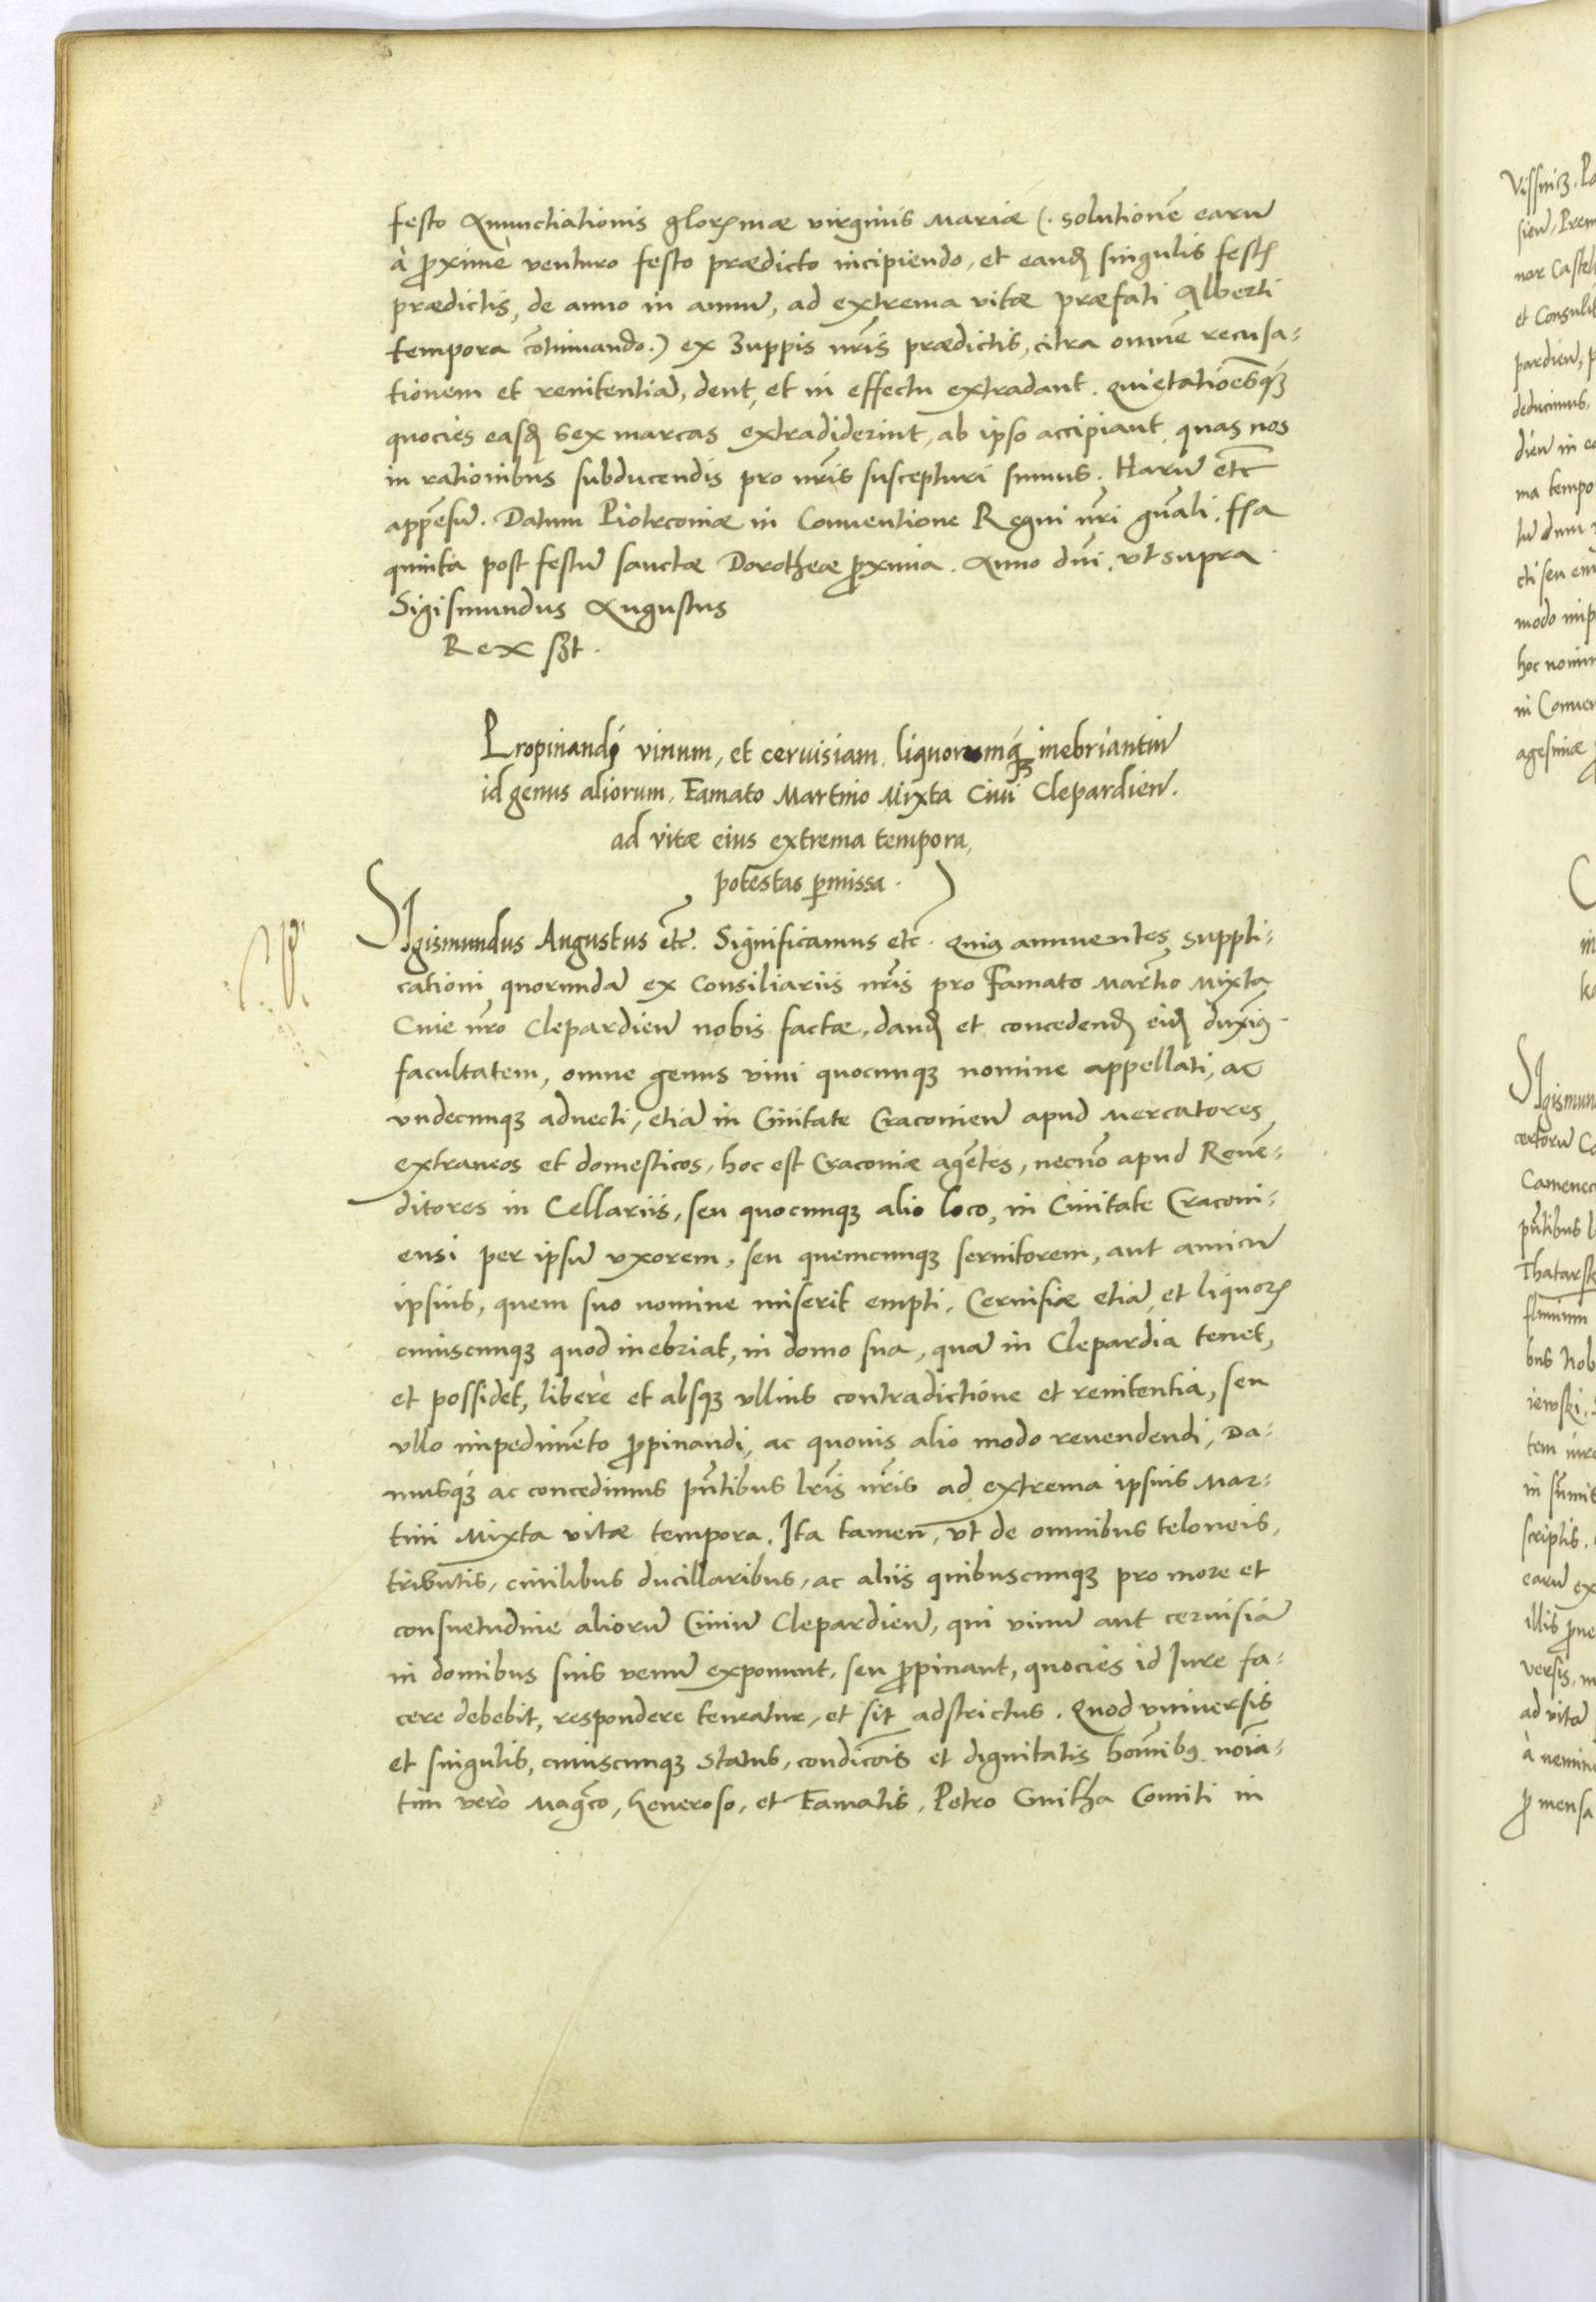 festo Annunctiationis glorꝭmæ virginis Mariæ (. solutionē earū
à ꝓximè venturo festo prædicto incipiendo, et eandꝭ singulis festꝭ
prædictis, de anno in annū, ad extrema vitæ præfati Alberti
tempora cōtinuando.) ex zuppis nrīs prædictis, citra omnē recusa-
tionem et renitentiā, dent, et in effectu extradant. Quietatioēsqꝫ
quocies easdꝭ sex marcas extradiderint, ab ipso accipiant, quas nos
in rationibus subducendis pro nrīs suscepturi sumus. Harū etc̄
appēsū. Datum Piotrconiæ in Conventione Regni nrī gn̄ali. ffa
quinta post festū sanctæ Dorotheæ ꝓxima. Anno dnī. ut supra
Sigismundus Augustus
Rex sszt.
Propinandi vinum, et cervisiam liquorumqꝫ inebriantiū
id genus aliorum, Famato Martino Mixta Civi Clepardieñ.
ad vitæ eius extrema tempora,
potestas ꝑmissa.
Sigismundus Augustus etc̄. Significamus etc. Quia annuentes suppli-
cationi quorundā ex Consiliariis nrīs pro Famato Martīo Mixta
Cive nrō Clepardieñ nobis factæ, dandꝭ et concedendꝭ eidꝭ duximꝰ
facultatem, omne genus vini quocunqꝫ nomine appellati, ac
undecunqꝫ advecti, etiā in Civitate Cracovieñ apud Mercatores
extraneos et domesticos, hoc est Cracoviæ agētes, necnō apud Revē-
ditores in Cellariis, seu quocunqꝫ alio loco, in Civitate Cracovi-
ensi per ipsū uxorem, seu quemcunqꝫ servitorem, aut amicū
ipsius, quem suo nomine miserit empti, Cervisiæ etiā et liquorꝭ
cuiuscunqꝫ quod inebriat, in domo sua, quā in Clepardia tenet,
et possidet, liberè et absqꝫ ullius contradictione et renitentia, seu
ullo impedimēto ꝓpinandi, ac quovis alio modo revendendi, Da-
musqꝫ ac concedimus pn̄tibus lrīs nrīs ad extrema ipsius Mar-
tini Mixta vitæ tempora. Ita tamen, ut de omnibus teloneis,
tributis, civilibus ducillaribus, ac aliis quibuscunqꝫ pro more et
consuetudine aliorū Civiū Clepardieñ, qui vinū aut cervisiā
in domibus suis venū exponunt, seu ꝓpinant, quocies id Iure fa-
cere debebit, respondere teneatur, et sit adstrictus. Quod universis
et singulis, cuiuscunqꝫ status, condicōis et dignitatis homībꝰ noīa-
tim verò Magc̄o, Generoso, et Famatis, Petro Cmitha Comiti in